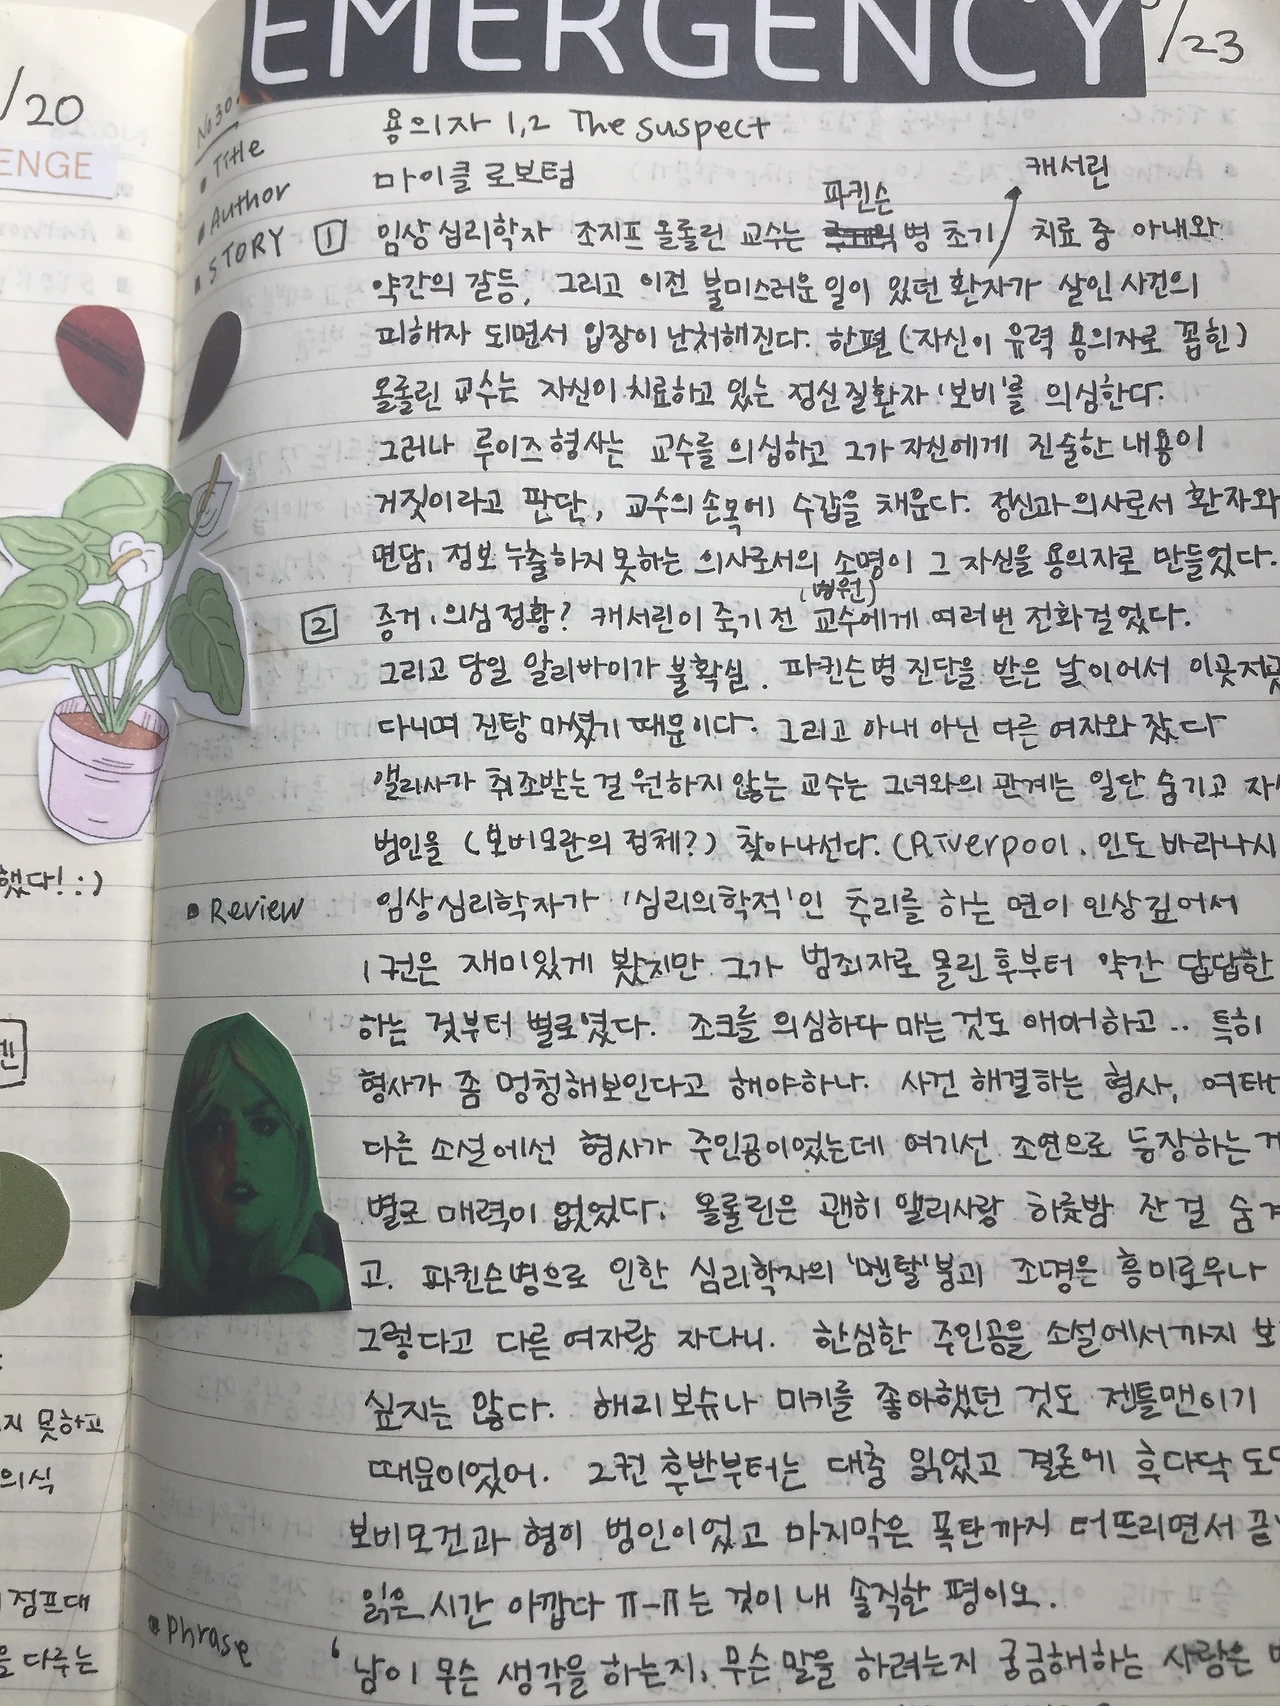 EMERGENCY
/23
/20
ENGE
No30.
Title 용의자 1,2 The suspect
Author 마이클 로보텀
파킨슨 캐서린
STORY 1 임상심리학자 조지프 올롤린 교수는 병 초기 / 치료 중 아내와
약간의 갈등, 그리고 이전 불미스러운 일이 있던 환자가 살인 사건의
피해자 되면서 입장이 난처해진다. 한편 (자신이 유력 용의자로 꼽힌)
올롤린 교수는 자신이 치료하고 있는 정신질환자 '보비'를 의심한다.
그러나 루이즈 형사는 교수를 의심하고 그가 자신에게 진술한 내용이
거짓이라고 판단, 교수의 손목에 수갑을 채운다. 정신과 의사로서 환자와
면담, 정보 누출하지 못하는 의사로서의 소명이 그 자신을 용의자로 만들었다.
(병원)
2 증거, 의심 정황? 캐서린이 죽기 전 교수에게 여러번 전화 걸었다.
그리고 당일 알리바이가 불확실. 파킨슨병 진단을 받은 날이어서 이곳저곳
다니며 진탕 마셨기 때문이다. 그리고 아내 아닌 다른 여자와 잤다
앨리사가 취조받는걸 원하지 않는 교수는 그녀와의 관계는 일단 숨기고
범인을 (보비모란의 정체?) 찾아나선다. (Riverpool, 인도 바라나시
했다! :)
Review 임상심리학자가 '심리의학적'인 추리를 하는 면이 인상깊어서
1권은 재미있게 봤지만 그가 범죄자로 몰린 후부터 약간 답답한
하는 것부터 별로였다. 조크를 의심하다 마는 것도 애매하고.. 특히
형사가 좀 멍청해보인다고 해야하나. 사건 해결하는 형사, 여태
다른 소설에선 형사가 주인공이었는데 여기선 조연으로 등장하는
별로 매력이 없었다. 올롤린은 괜히 앨리사랑 하룻밤 잔 걸
고. 파킨슨병으로 인한 심리학자의 '멘탈'붕괴 조명은 흥미로우나
그렇다고 다른 여자랑 자다니. 한심한 주인공을 소설에서까지
싶지는 않다. 해리 보슈나 미키를 좋아했던 것도 젠틀맨이기
때문이었어. 2권 후반부터는 대충 읽었고 결론에 후다닥
보비모건과 형이 범인이었고 마지막은 폭탄까지 터뜨리면서
읽은 시간 아깝다 ㅠ-ㅠ는 것이 내 솔직한 평이오.
Phrase '남이 무슨 생각을 하는지, 무슨 말을 하려는지 궁금해하는 사람은
지 못하고
의식
점프대
을 다루는